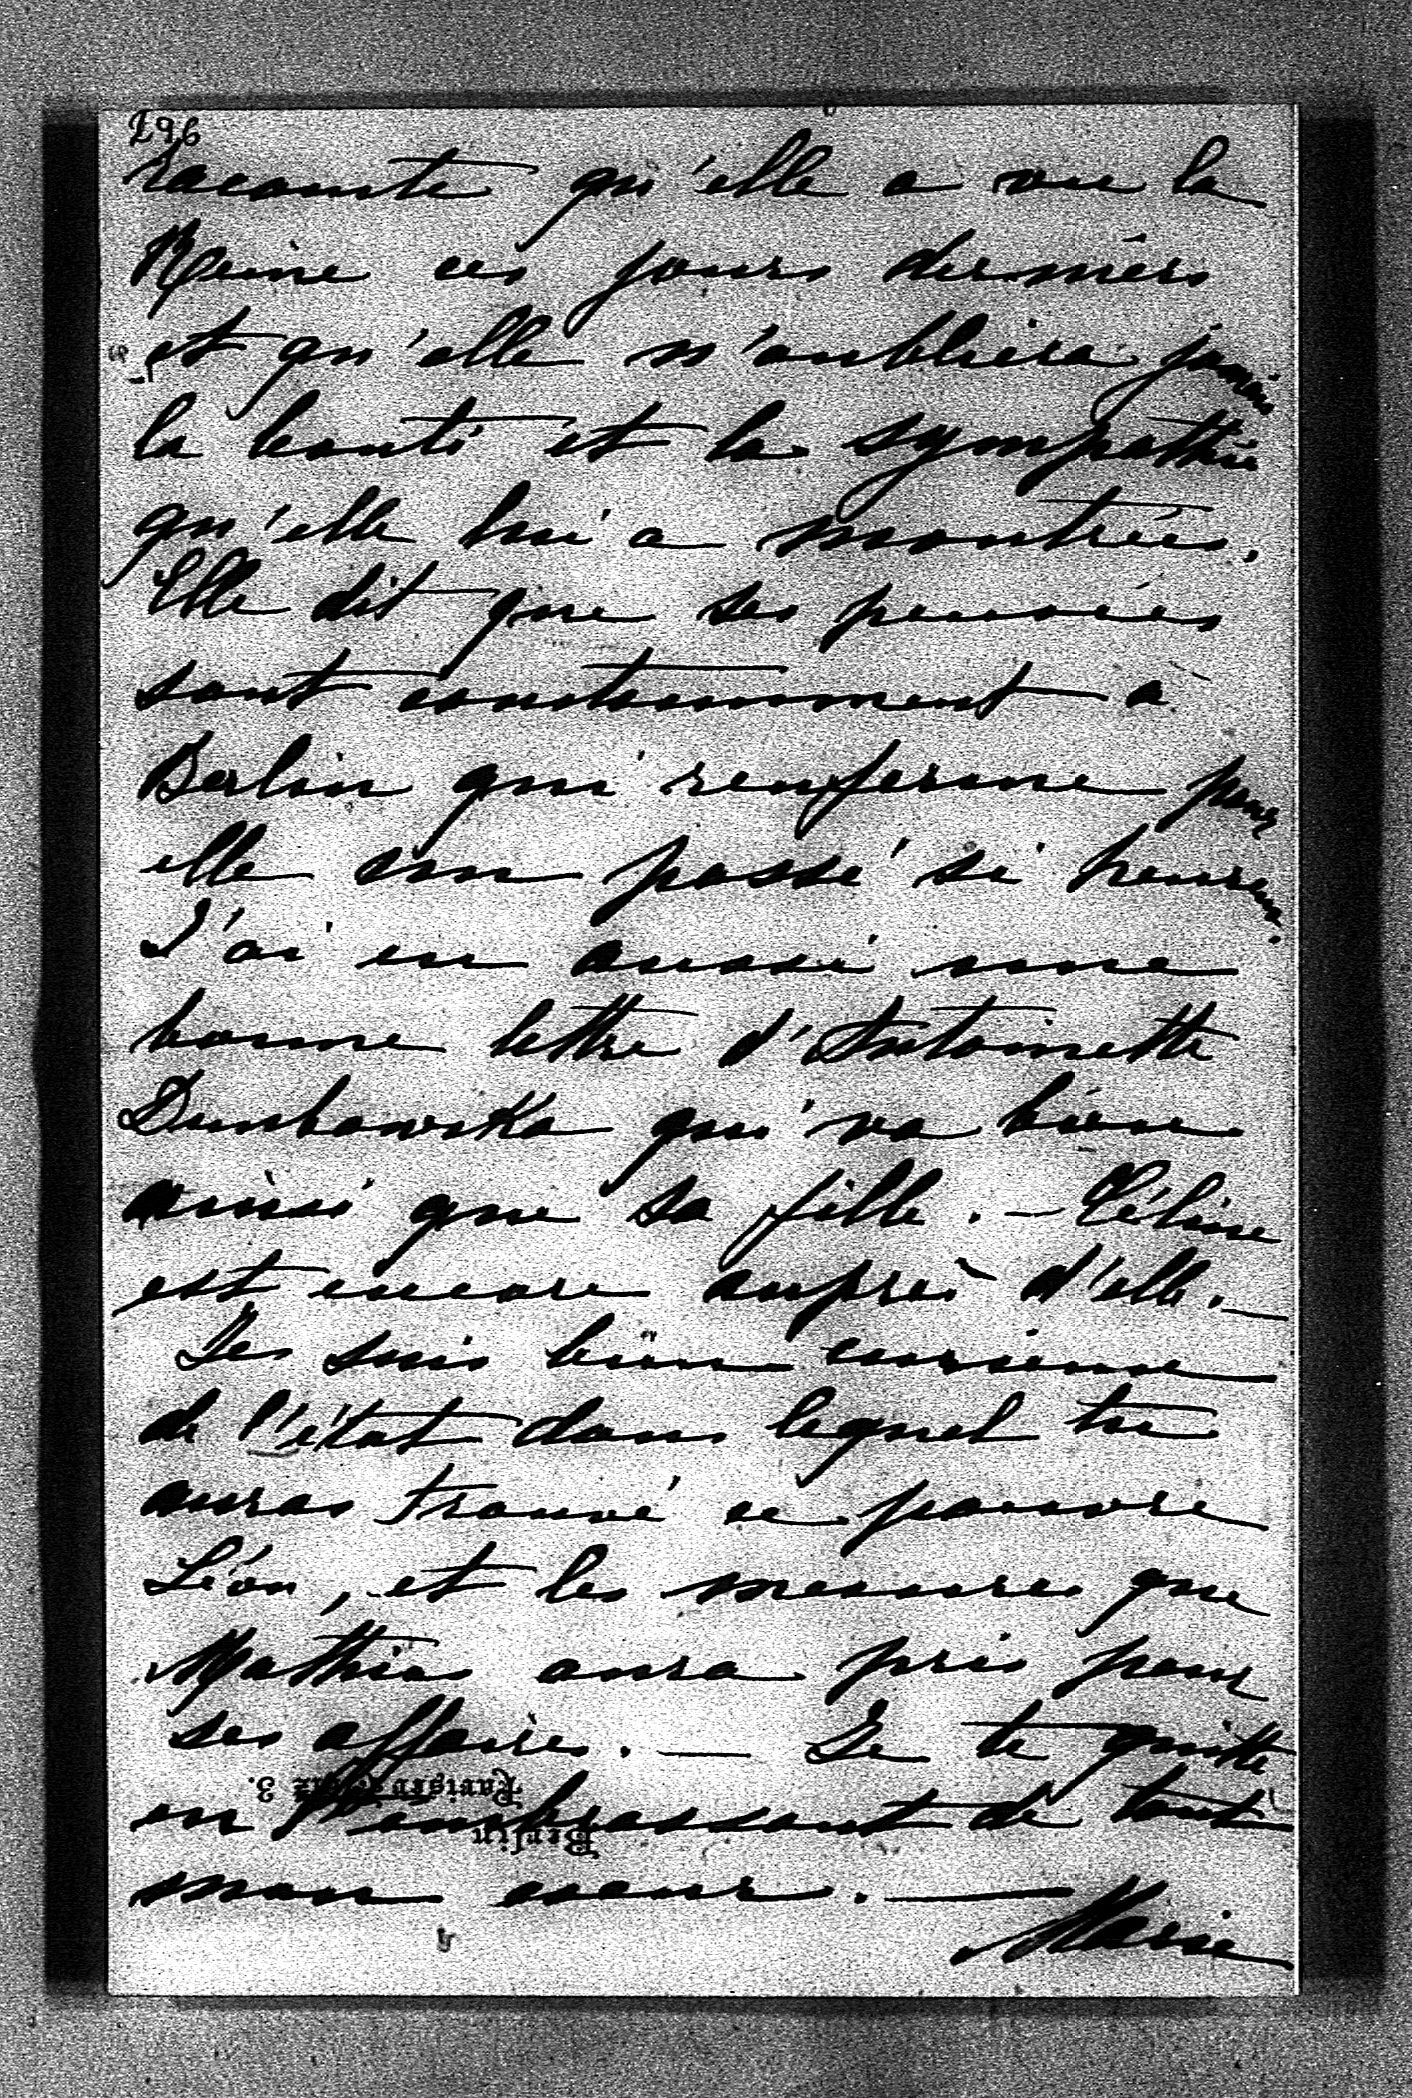 296
raconte qu'elle a vue la
Reine ces jours derniers
et qu'elle n'oubliera jamais
la bonté et la sympathie
qu'elle lui a montrées.
Elle dit que ses pensées
sont constamment à
Berlin qui renferme pour
elle son passé si heureux.
J'ai eu aussi une
bonne lettre d'Antoinette
qui va bien
ainsi que sa fille. — Céline
est encore auprès d'elle. —
Je suis bien curieuse
de l'état dans lequel tu
auras trouvé ce pauvre
Léon, et les mesures que
Mathias aura pris pour
ses affaires. — Je te quitte
en t'embrassant de tout
mon coeur. —
Marie
Pariser Platz 3.
Berlin